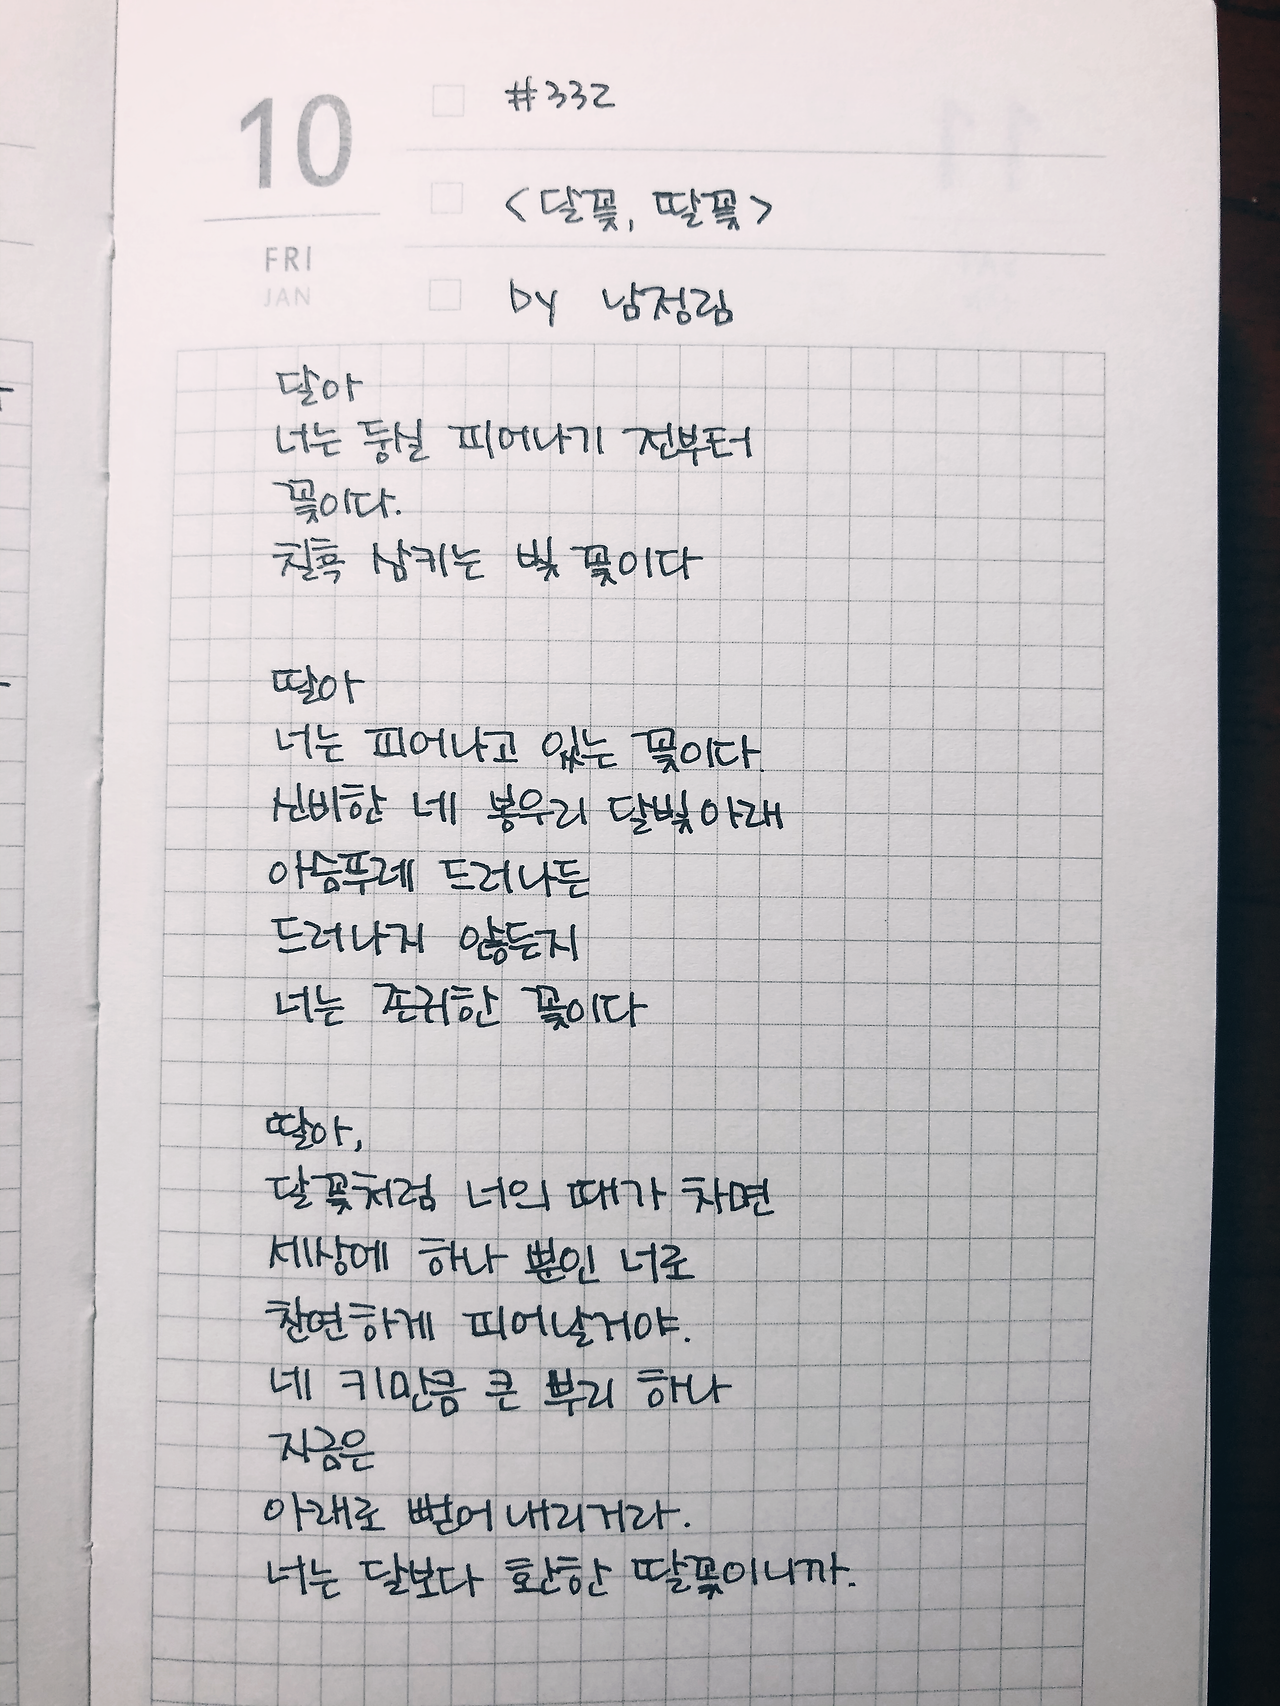 10
FRI
JAN
#332
<달꽃, 딸꽃>
by 남정림
달아
너는 둥실 피어나기 전부터
꽃이다.
칠흑 삼키는 빛 꽃이다
딸아
너는 피어나고 있는 꽃이다.
신비한 네 봉우리 달빛아래
아슴푸레 드러나든
드러나지 않든지
너는 존귀한 꽃이다
딸아,
달꽃처럼 너의 때가 차면
세상에 하나 뿐인 너로
찬연하게 피어날거야.
네 키만큼 큰 뿌리 하나
지금은
아래로 뻗어 내리거라.
너는 달보다 환한 딸꽃이니까.